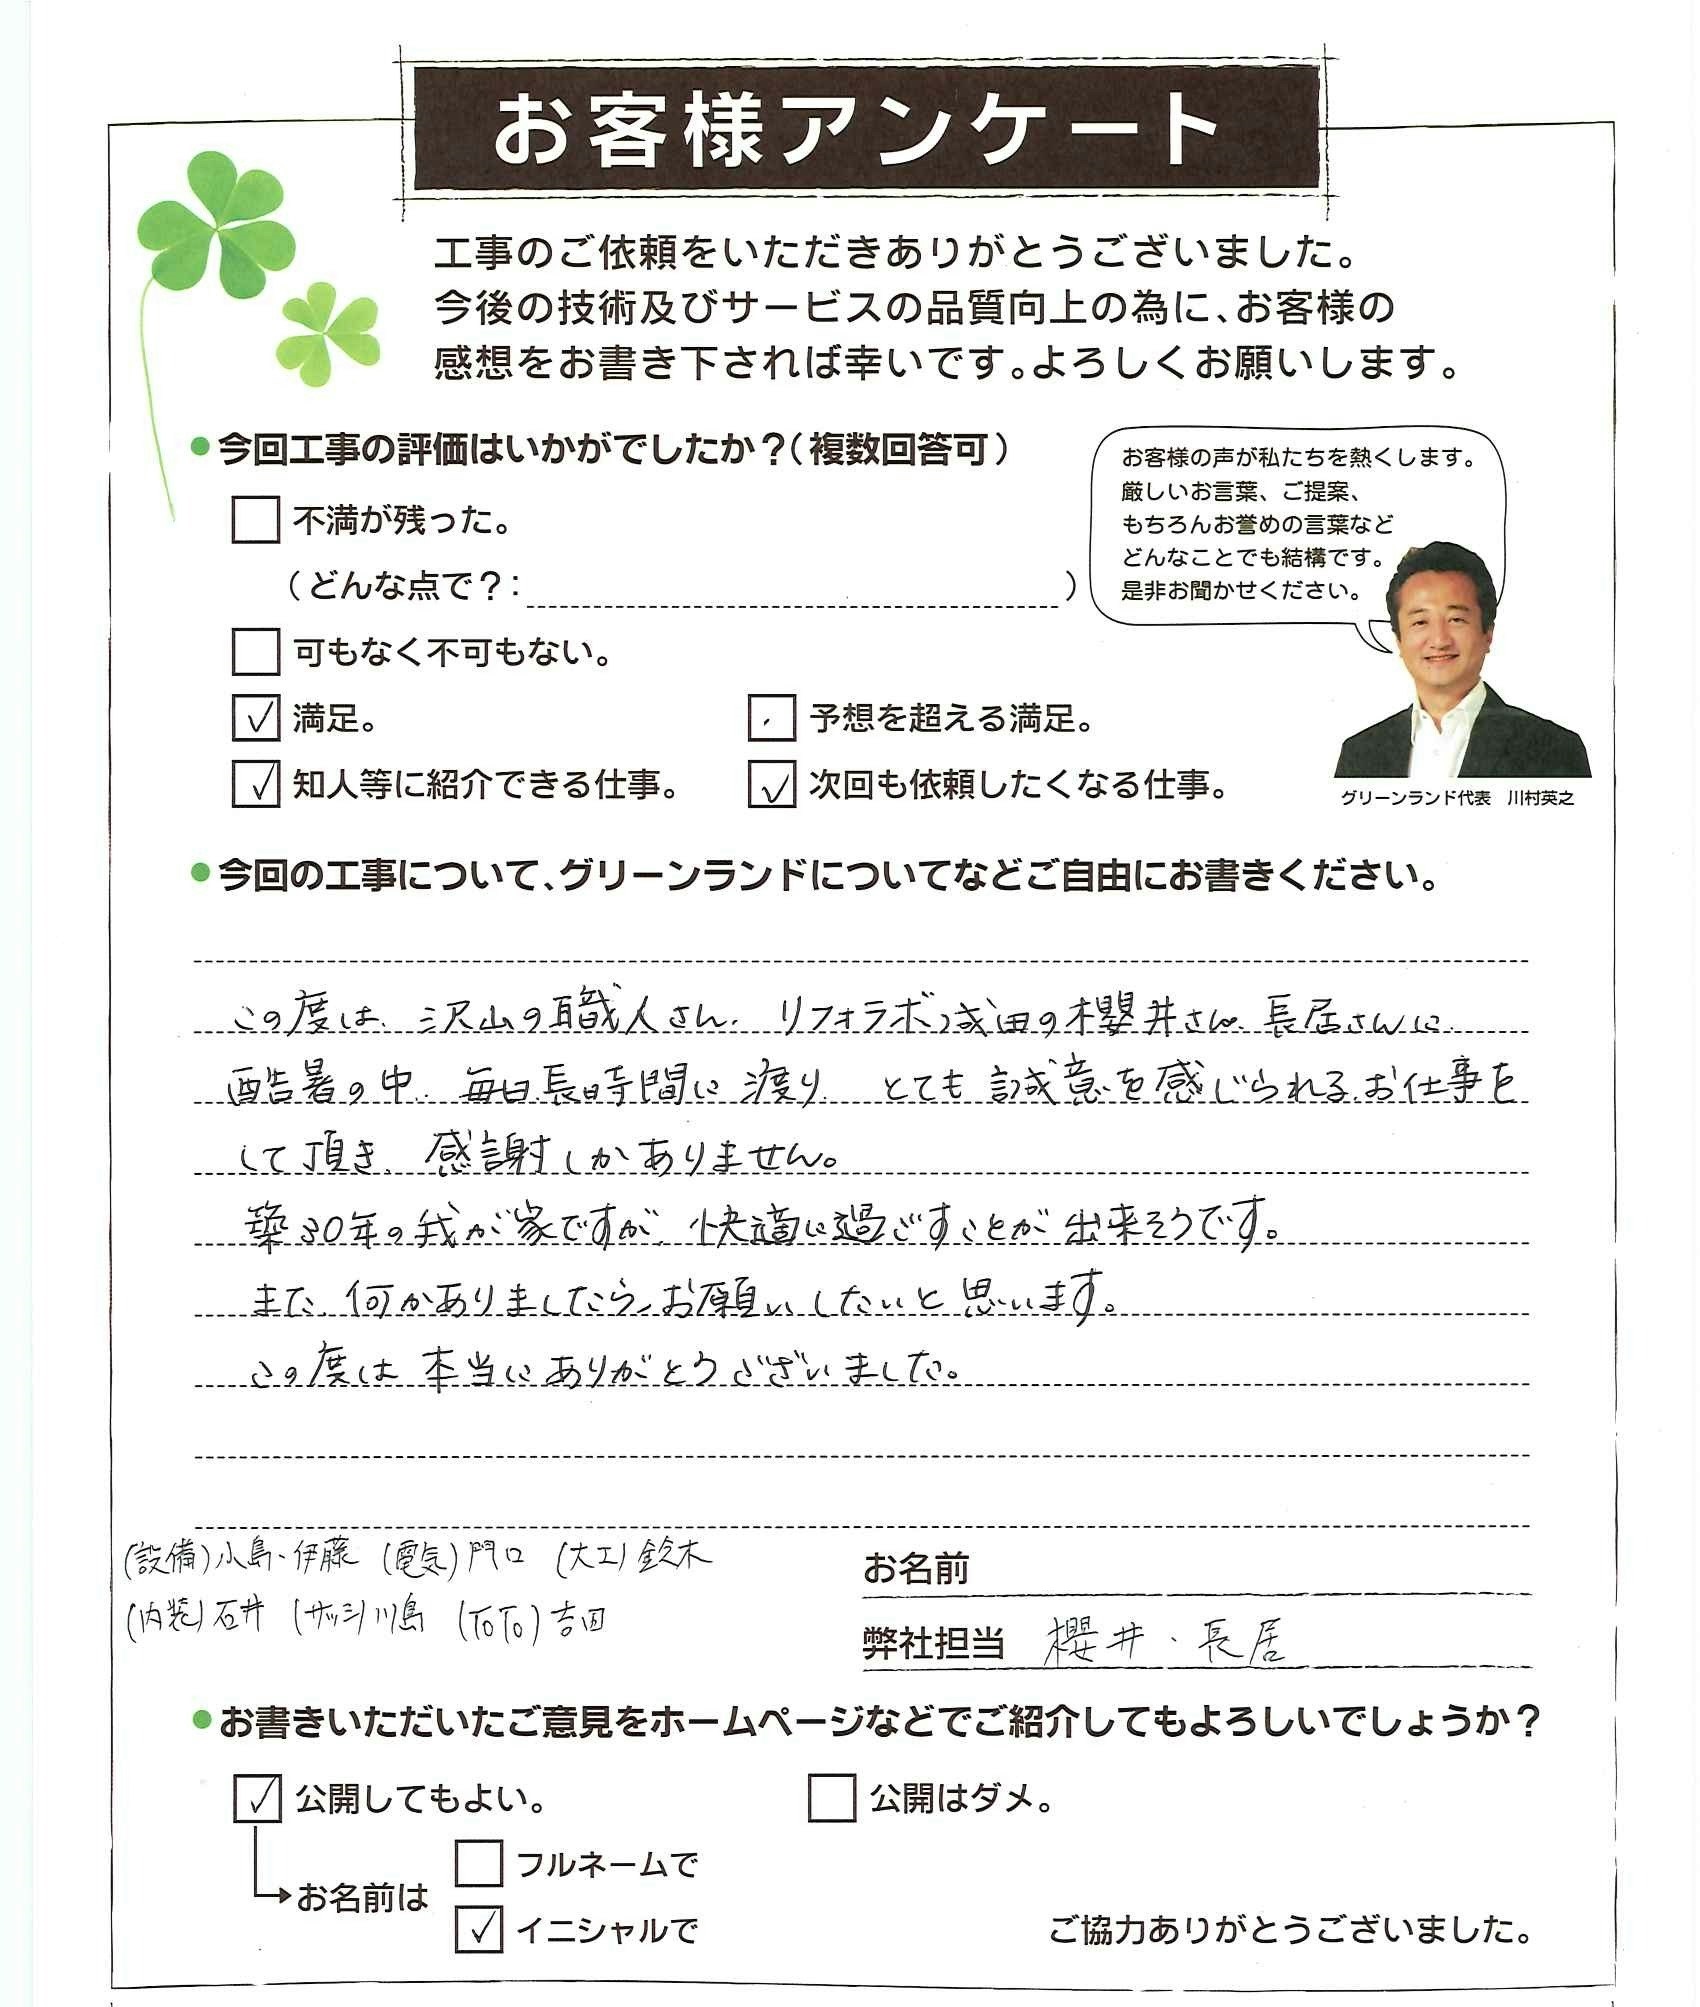 お客様アンケート
工事のご依頼をいただきありがとうございました。
今後の技術及びサービスの品質向上の為に、お客様の
感想をお書き下されば幸いです。よろしくお願いします。
●今回工事の評価はいかがでしたか？（複数回答可）
不満が残った。
（どんな点で？：　　　　）
可もなく不可もない。
✓ 満足。　予想を超える満足。
✓ 知人等に紹介できる仕事。　✓ 次回も依頼したくなる仕事。
お客様の声が私たちを熱くします。
厳しいお言葉、ご提案、
もちろんお誉めの言葉など
どんなことでも結構です。
是非お聞かせください。
グリーンランド代表　川村英之
●今回の工事について、グリーンランドについてなどご自由にお書きください。
この度は、沢山の職人さん、リフォラボ成田の櫻井さん、長居さんに
酷暑の中、毎日長時間に渡り、とても誠意を感じられるお仕事を
して頂き、感謝しかありません。
築30年の我が家ですが、快適に過ごすことが出来そうです。
また、何かありましたら、お願いしたいと思います。
この度は本当にありがとうございました。
(設備)小島・伊藤 (電気)門口 (大工)鈴木
(内装)石井 (サッシ)川島 (TOTO)吉田
お名前
弊社担当　櫻井・長居
●お書きいただいたご意見をホームページなどでご紹介してもよろしいでしょうか？
✓ 公開してもよい。　公開はダメ。
お名前は
フルネームで
✓ イニシャルで
ご協力ありがとうございました。